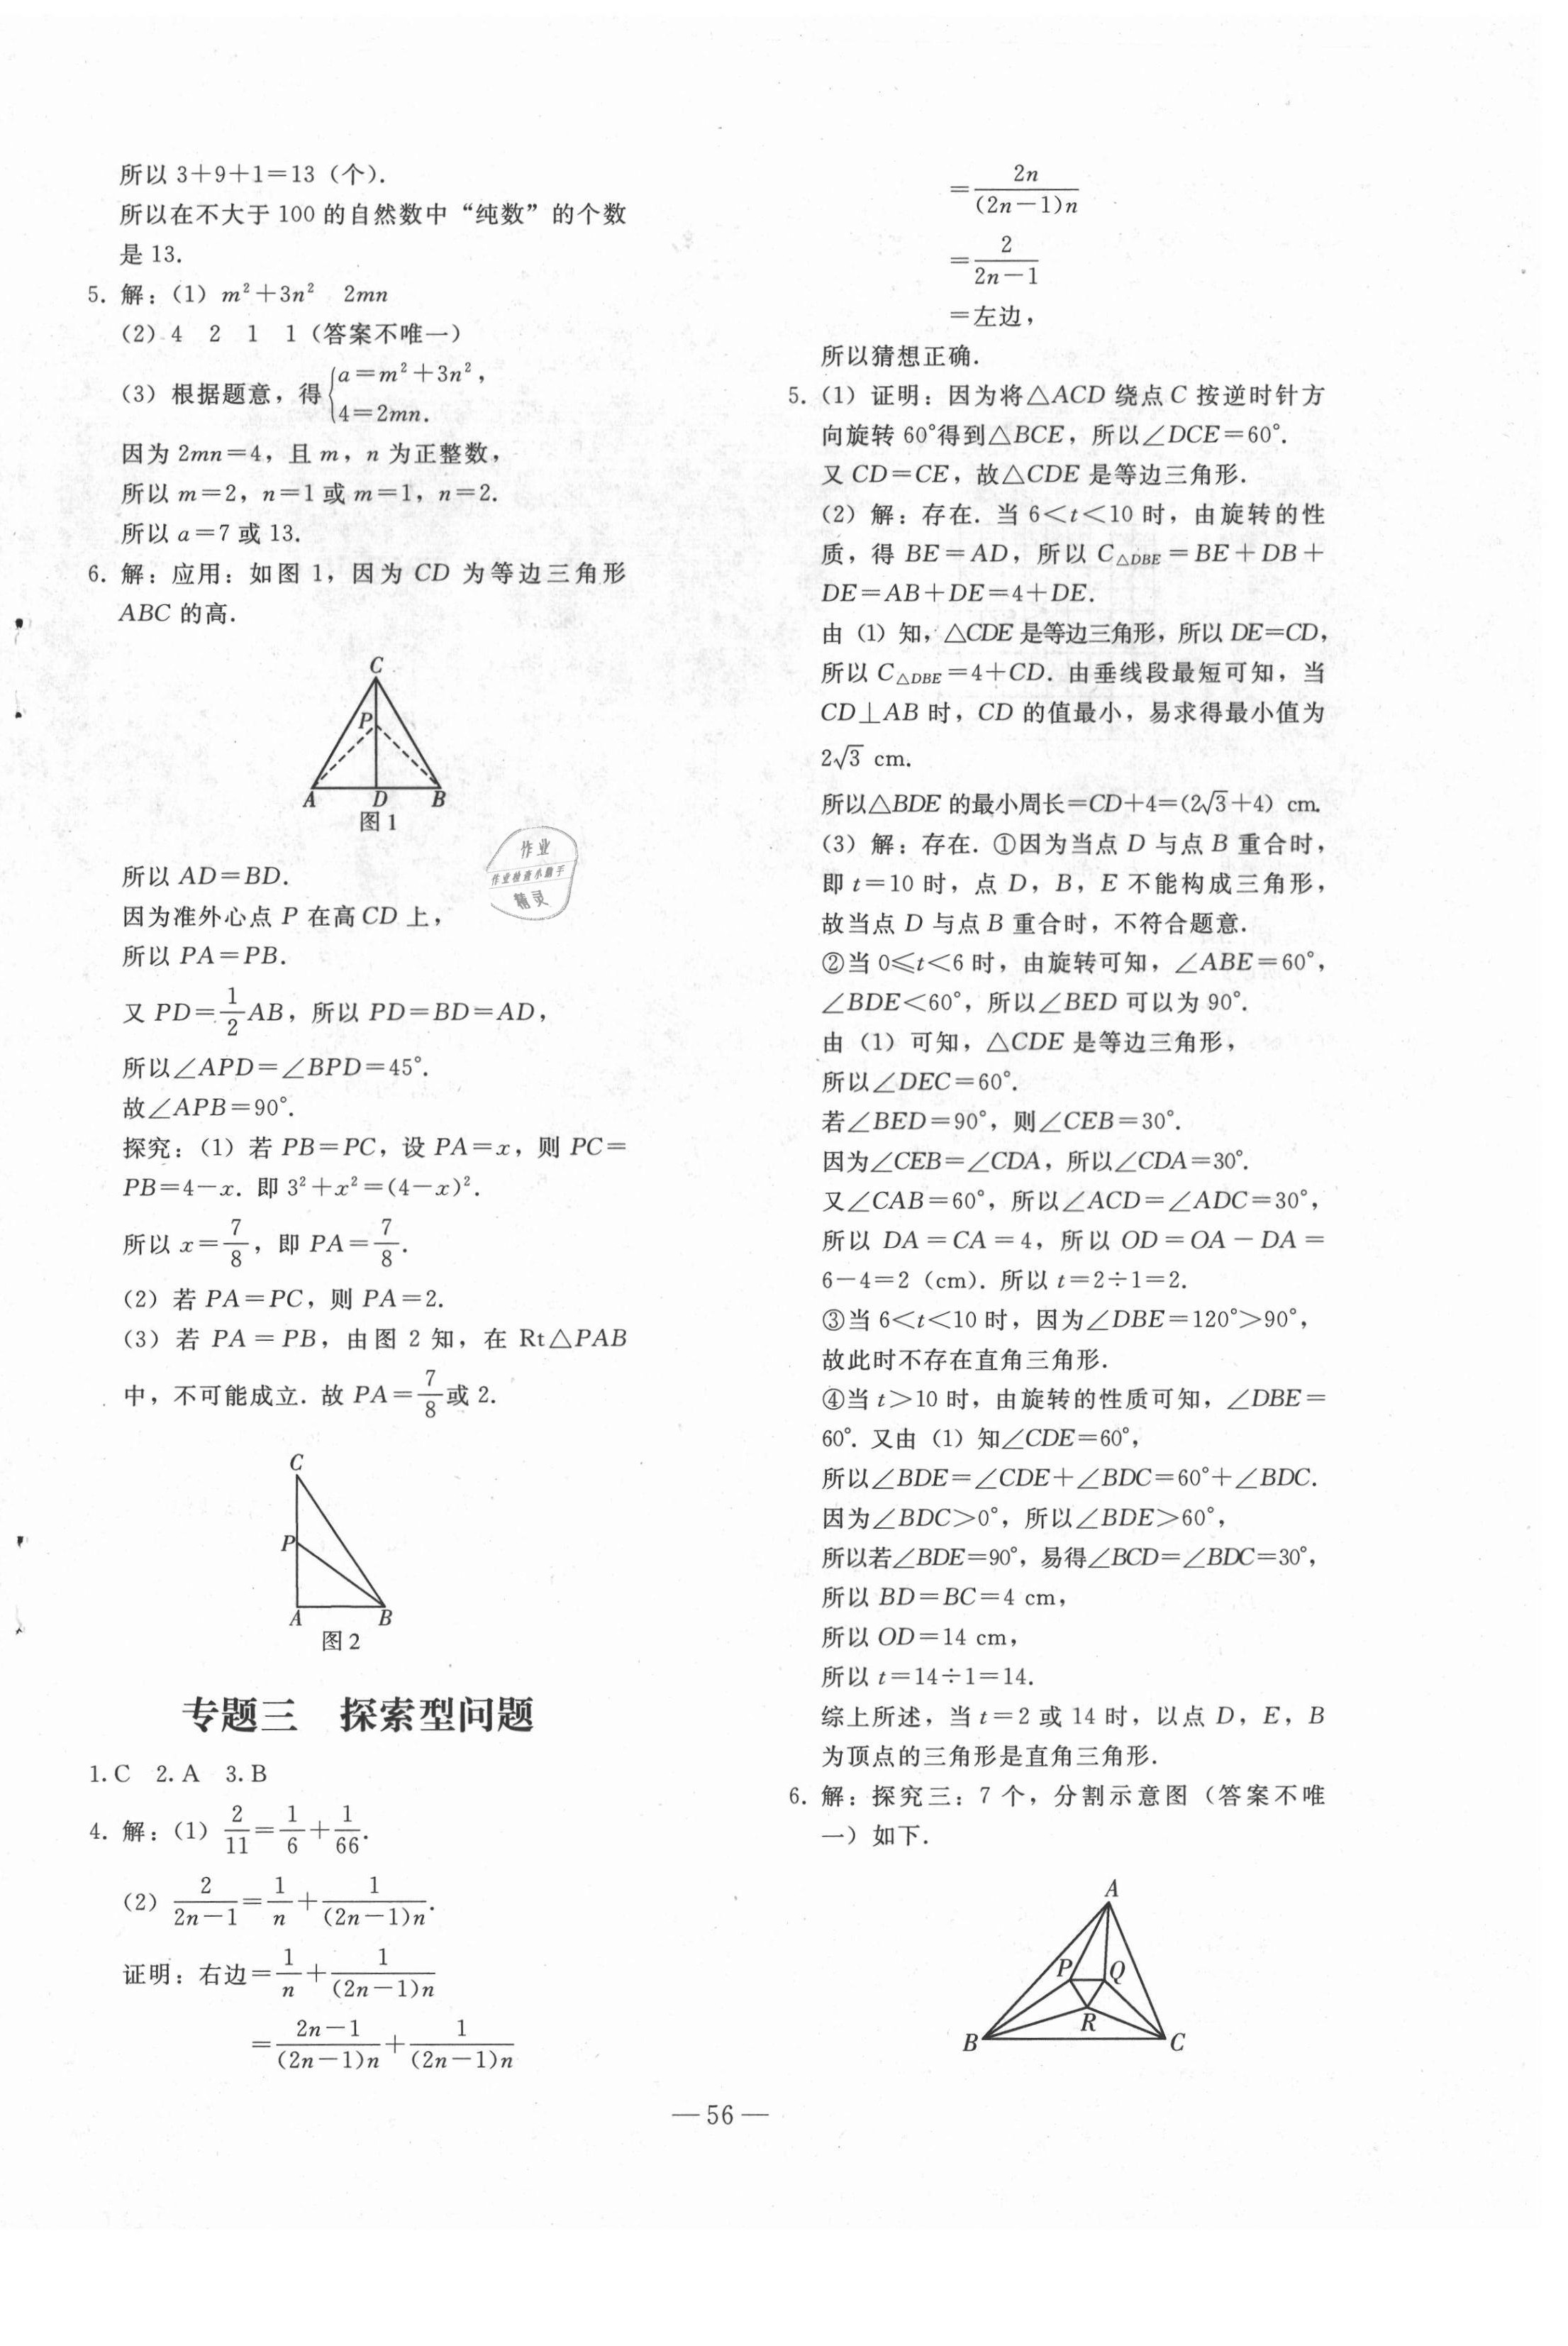 所以 3+9+1=13（个）.
所以在不大于 100 的自然数中“纯数”的个数
是 13.
5. 解：（1）m²+3n²　2mn
（2）4　2　1　1（答案不唯一）
（3）根据题意，得{a=m²+3n²，
4=2mn.
因为 2mn=4，且 m，n 为正整数，
所以 m=2，n=1 或 m=1，n=2.
所以 a=7 或 13.
6. 解：应用：如图 1，因为 CD 为等边三角形
ABC 的高.
C
P
A D B
图 1
作业
作业检查小助手
精灵
所以 AD=BD.
因为准外心点 P 在高 CD 上，
所以 PA=PB.
又 PD=1/2 AB，所以 PD=BD=AD，
所以∠APD=∠BPD=45°.
故∠APB=90°.
探究：（1）若 PB=PC，设 PA=x，则 PC=
PB=4-x. 即 3²+x²=(4-x)².
所以 x=7/8，即 PA=7/8.
（2）若 PA=PC，则 PA=2.
（3）若 PA=PB，由图 2 知，在 Rt△PAB
中，不可能成立. 故 PA=7/8 或 2.
C
P
A B
图 2
专题三　探索型问题
1. C　2. A　3. B
4. 解：（1）2/11=1/6+1/66.
（2）2/(2n-1)=1/n+1/((2n-1)n).
证明：右边=1/n+1/((2n-1)n)
=(2n-1)/((2n-1)n)+1/((2n-1)n)
=2n/((2n-1)n)
=2/(2n-1)
=左边，
所以猜想正确.
5. （1）证明：因为将△ACD 绕点 C 按逆时针方
向旋转 60°得到△BCE，所以∠DCE=60°.
又 CD=CE，故△CDE 是等边三角形.
（2）解：存在. 当 6<t<10 时，由旋转的性
质，得 BE=AD，所以 C△DBE=BE+DB+
DE=AB+DE=4+DE.
由（1）知，△CDE 是等边三角形，所以 DE=CD，
所以 C△DBE=4+CD. 由垂线段最短可知，当
CD⊥AB 时，CD 的值最小，易求得最小值为
2√3 cm.
所以△BDE 的最小周长=CD+4=(2√3+4) cm.
（3）解：存在. ①因为当点 D 与点 B 重合时，
即 t=10 时，点 D，B，E 不能构成三角形，
故当点 D 与点 B 重合时，不符合题意.
②当 0≤t<6 时，由旋转可知，∠ABE=60°，
∠BDE<60°，所以∠BED 可以为 90°.
由（1）可知，△CDE 是等边三角形，
所以∠DEC=60°.
若∠BED=90°，则∠CEB=30°.
因为∠CEB=∠CDA，所以∠CDA=30°.
又∠CAB=60°，所以∠ACD=∠ADC=30°，
所以 DA=CA=4，所以 OD=OA-DA=
6-4=2（cm）. 所以 t=2÷1=2.
③当 6<t<10 时，因为∠DBE=120°>90°，
故此时不存在直角三角形.
④当 t>10 时，由旋转的性质可知，∠DBE=
60°. 又由（1）知∠CDE=60°，
所以∠BDE=∠CDE+∠BDC=60°+∠BDC.
因为∠BDC>0°，所以∠BDE>60°，
所以若∠BDE=90°，易得∠BCD=∠BDC=30°，
所以 BD=BC=4 cm，
所以 OD=14 cm，
所以 t=14÷1=14.
综上所述，当 t=2 或 14 时，以点 D，E，B
为顶点的三角形是直角三角形.
6. 解：探究三：7 个，分割示意图（答案不唯
一）如下.
A
P Q
R
B C
— 56 —